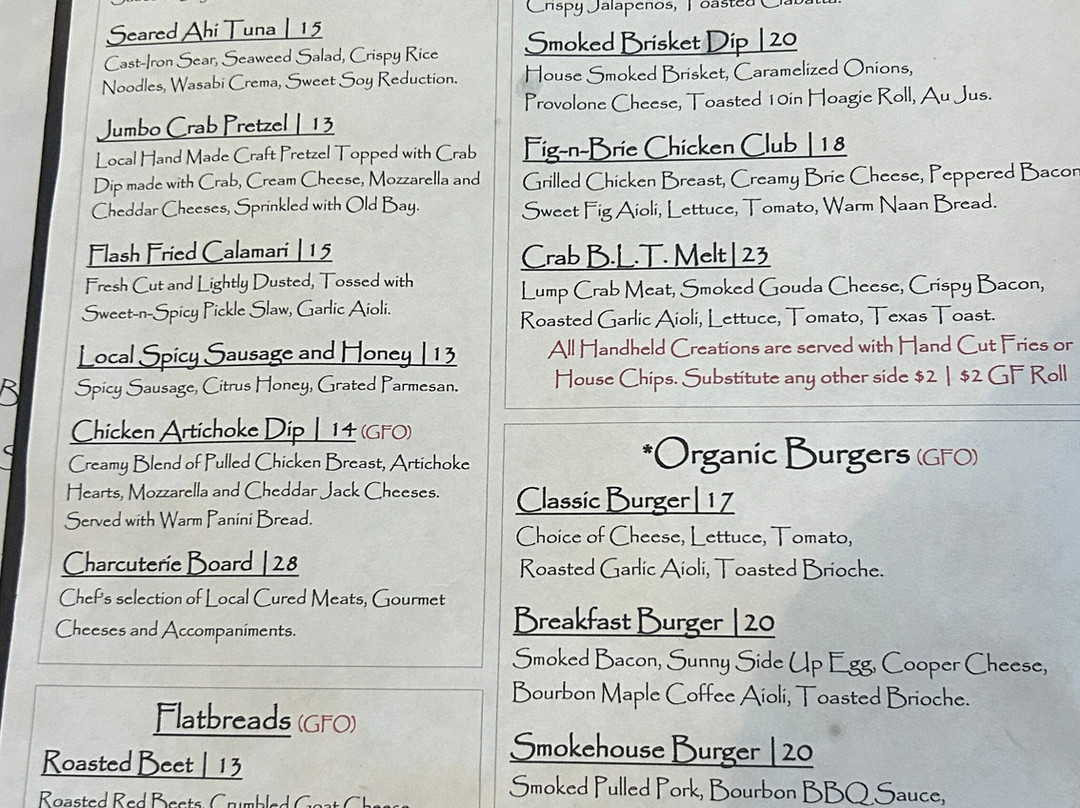 Seared Ahi Tuna | 15
Cast-Iron Sear, Seaweed Salad, Crispy Rice
Noodles, Wasabi Crema, Sweet Soy Reduction.
Jumbo Crab Pretzel | 13
Local Hand Made Craft Pretzel Topped with Crab
Dip made with Crab, Cream Cheese, Mozzarella and
Cheddar Cheeses, Sprinkled with Old Bay.
Flash Fried Calamari | 15
Fresh Cut and Lightly Dusted, Tossed with
Sweet-n-Spicy Pickle Slaw, Garlic Aioli.
Local Spicy Sausage and Honey | 13
Spicy Sausage, Citrus Honey, Grated Parmesan.
Chicken Artichoke Dip | 14 (GFO)
Creamy Blend of Pulled Chicken Breast, Artichoke
Hearts, Mozzarella and Cheddar Jack Cheeses.
Served with Warm Panini Bread.
Charcuterie Board | 28
Chef's selection of Local Cured Meats, Gourmet
Cheeses and Accompaniments.
Flatbreads (GFO)
Roasted Beet | 13
Roasted Red Beets, Crumbled Goat Cheese
Crispy Jalapenos, Toasted Ciabatta.
Smoked Brisket Dip | 20
House Smoked Brisket, Caramelized Onions,
Provolone Cheese, Toasted 10in Hoagie Roll, Au Jus.
Fig-n-Brie Chicken Club | 18
Grilled Chicken Breast, Creamy Brie Cheese, Peppered Bacon
Sweet Fig Aioli, Lettuce, Tomato, Warm Naan Bread.
Crab B.L.T. Melt | 23
Lump Crab Meat, Smoked Gouda Cheese, Crispy Bacon,
Roasted Garlic Aioli, Lettuce, Tomato, Texas Toast.
All Handheld Creations are served with Hand Cut Fries or
House Chips. Substitute any other side $2 | $2 GF Roll
*Organic Burgers (GFO)
Classic Burger | 17
Choice of Cheese, Lettuce, Tomato,
Roasted Garlic Aioli, Toasted Brioche.
Breakfast Burger | 20
Smoked Bacon, Sunny Side Up Egg, Cooper Cheese,
Bourbon Maple Coffee Aioli, Toasted Brioche.
Smokehouse Burger | 20
Smoked Pulled Pork, Bourbon BBQ Sauce,